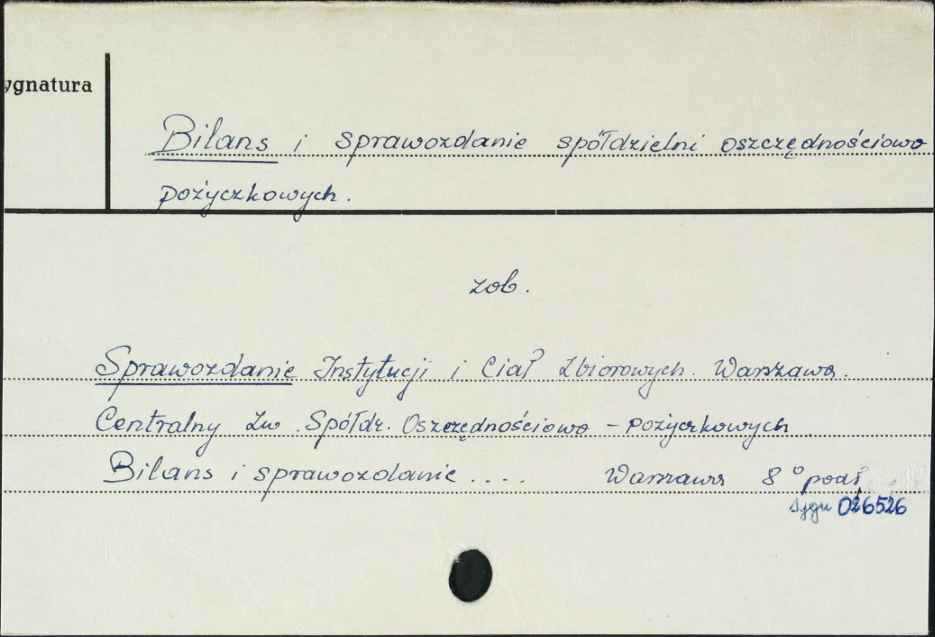 ygnatura
Bilans i sprawozdanie spółdzielni oszczędnościowo
pożyczkowych.
zob.
Sprawozdanie Instytucji i Ciał Zbiorowych. Warszawa.
Centralny Zw. Spółdz. Oszczędnościowo - pożyczkowych
Bilans i sprawozdanie .... Warszawa 8°
026526